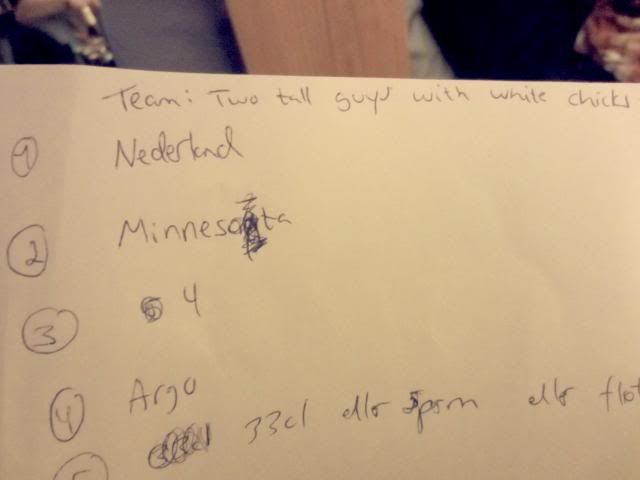 Team: Two tall guys with white chicks
1 Nederland
2 Minnesota
3 4
4 Argo
5 33cl